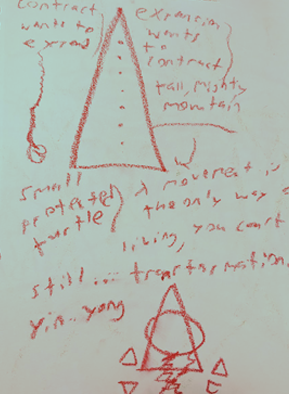 contract
wants to
expand
expansion
wants
to
contract
tall, mighty
mountain
small
protected
turtle
movement is
the only way
living, you can't
still ... transformation.
yin.. yang